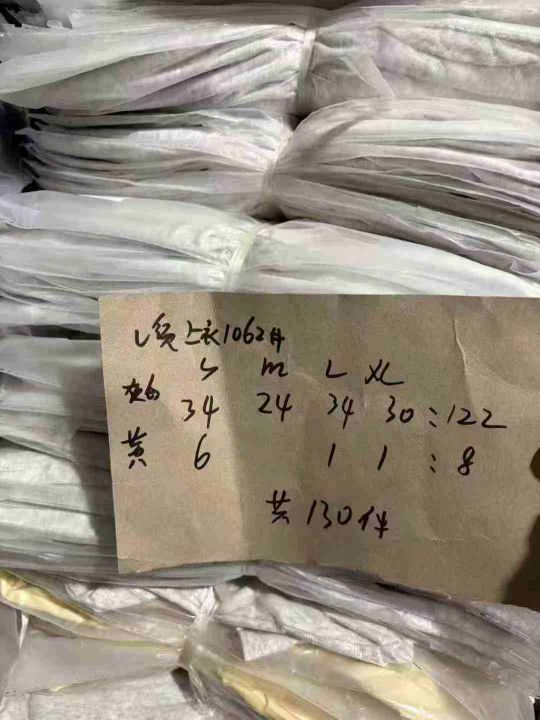 上衣1062件
S M L XL
34 24 34 30:122
黄 6 1 1:8
共130件